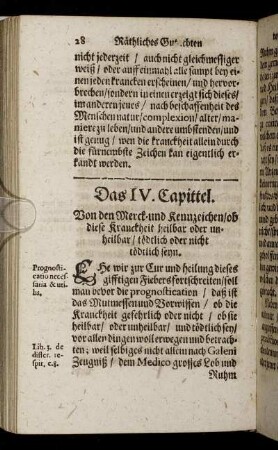 28 Räthliches Gutachten
nicht jederzeit / auch nicht gleichmessiger
weiß / oder auff einmahl alle sampt bey ei-
nen jeden krancken erscheinen / und hervor-
brechen / sondern in einen erzeigt sich dieses /
im anderen jenes / nach beschaffenheit des
Menschen natur / complexion / alter / ma-
niere zu leben / und andere umbstenden / und
ist genug / wen die kranckheit allein durch
die fürnembste Zeichen kan eigentlich er-
kandt werden.
Das IV. Capittel.
Von den Merck- und Kennzeichen / ob
diese Kranckheit heilbar oder un-
heilbar / tödtlich oder nicht
tödtlich seyn.
Prognosti-
catio neces-
saria & uti-
lis.
EHe wir zur Cur und heilung dieses
gifftigen Fiebers fortschreiten / soll
man bevor die prognostication / daß ist
das Mutmessen und Vorwissen / ob die
Kranckheit gefehrlich oder nicht / ob sie
heilbar / oder unheilbar / und tödtlich sey /
vor allen dingen woll erwegen und betrach-
ten; weil selbiges nicht allein nach Galeni
Zeugniß / dem Medico grosses Lob und
Lib. 3. de
differ. re-
spir. c. 8.
Ruhm